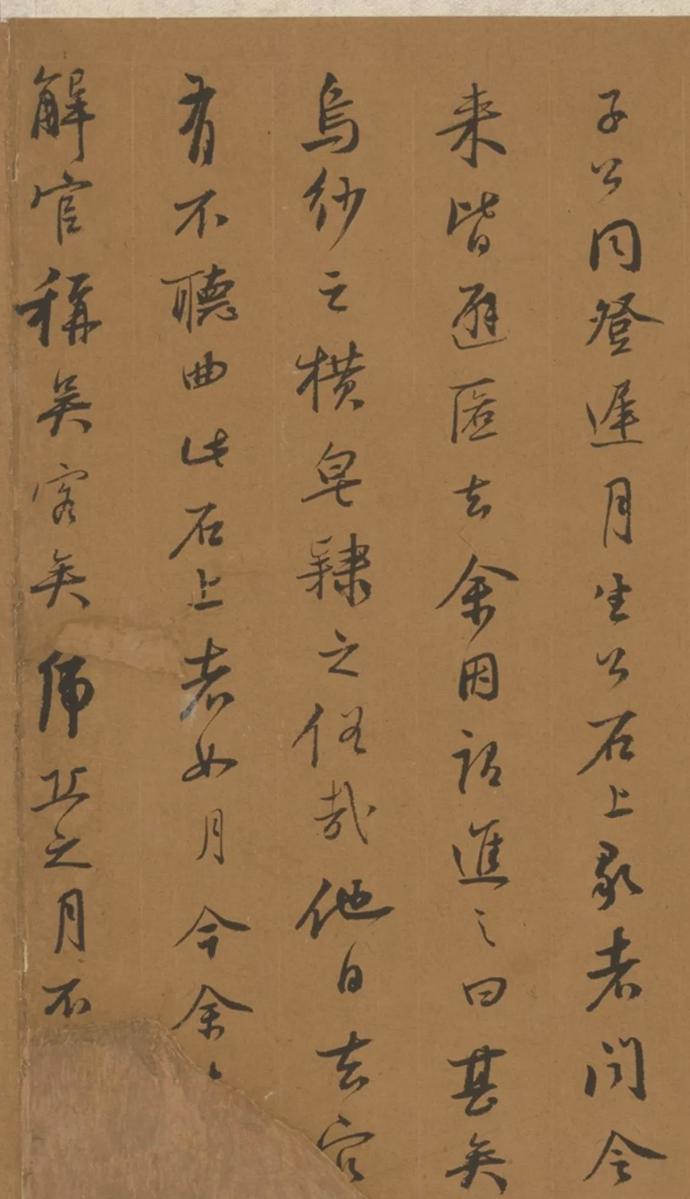 子公同登遲月生公石上歌者聞令
来皆避匿去余因進之曰甚矣
烏紗之橫皂隸之俗哉他日去官
有不聽曲此石上者如月今余
解官稱吳客矣虎丘之月不